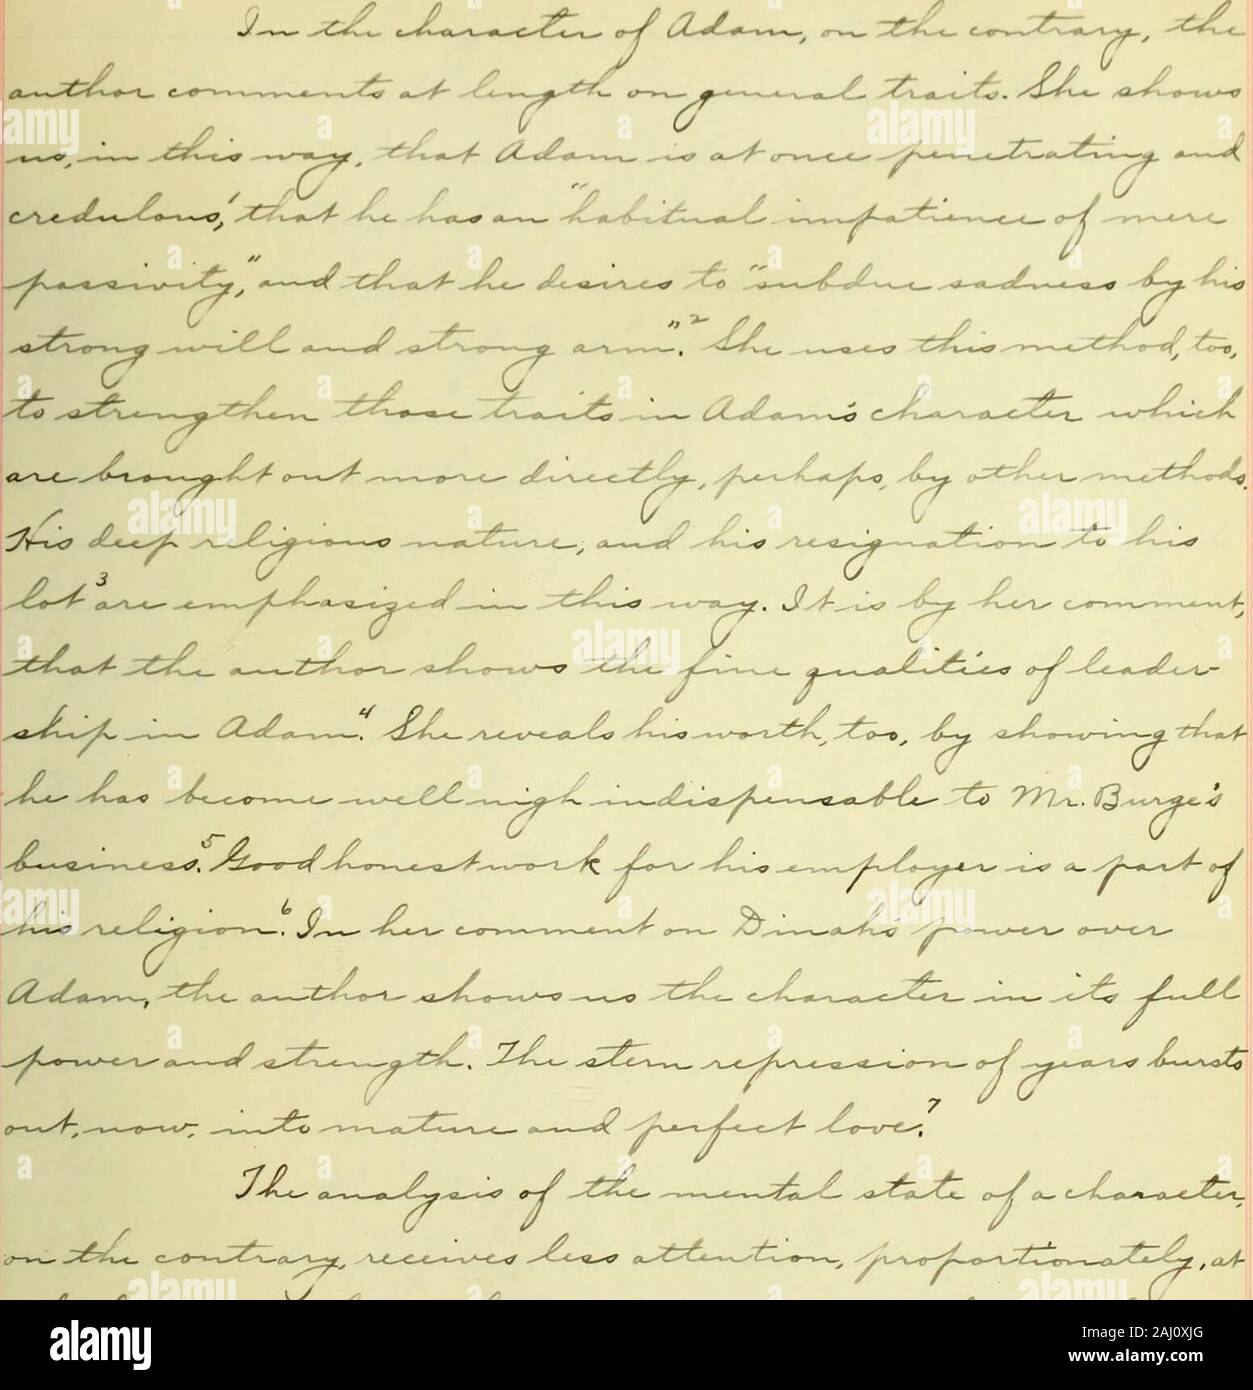 In the character of Adam, on the contrary, the
author comments at length on general traits. She shows
us, in this way, that Adam is at once penetrating and
credulous,¹ that he has an "habitual impatience of mere
passivity," and that he desires to "subdue sadness by his
strong will and strong arm."² She uses this method, too,
to strengthen those traits in Adam's character which
are brought out more directly, perhaps, by other methods.
His deep religious nature, and his resignation to his
lot³ are emphasized in this way. It is by her comment,
that the author shows the fine qualities of leader-
ship in Adam.⁴ She reveals his worth, too, by showing that
he has become well nigh indispensable to Mr. Burge's
business.⁵ Good honest work for his employer is a part of
his religion.⁶ In her comment on Dinah's power over
Adam, the author shows us the character in its full
power and strength. The stern repression of years bursts
out, now, into mature and perfect love.⁷
The analysis of the mental state of a character,
on the contrary, receives less attention, proportionately, at
alamy
Image ID: 2AJ0XJG
www.alamy.com